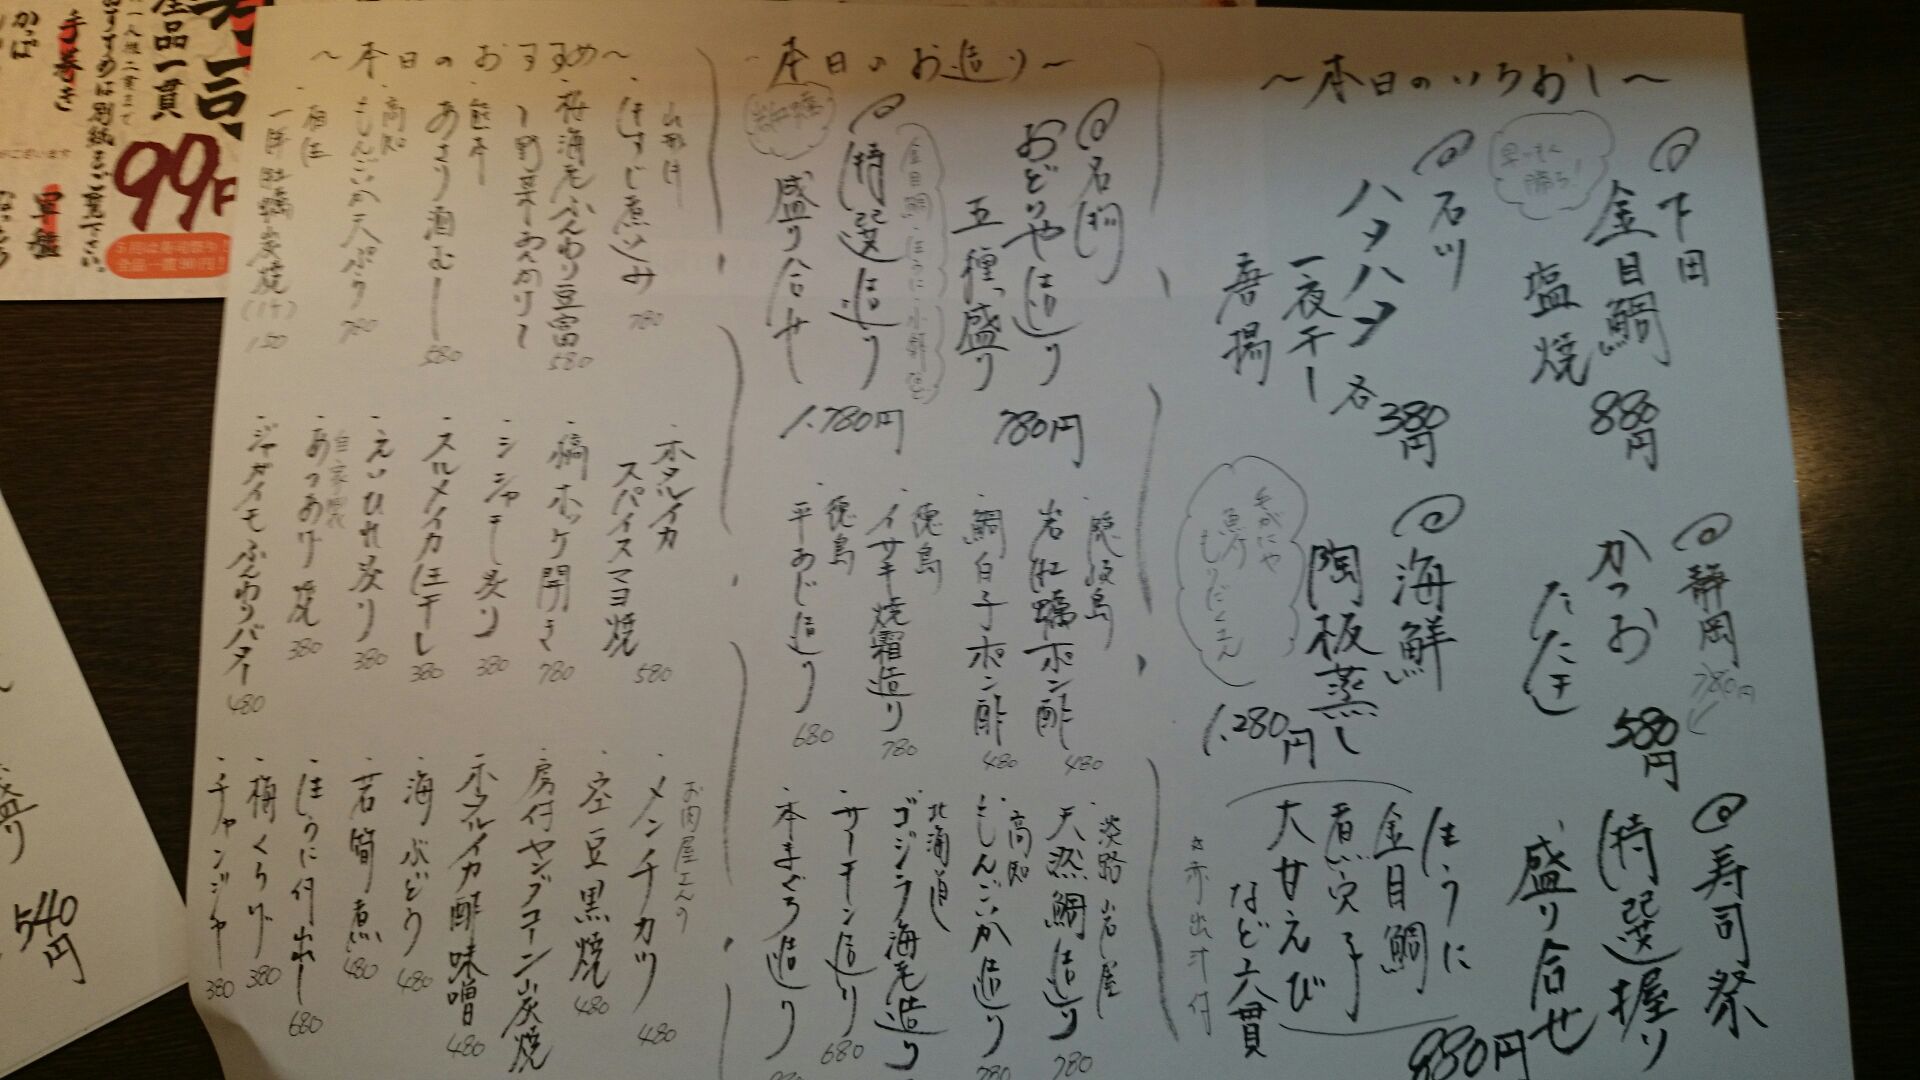 〜本日のいちおし〜
@下田
金目鯛
塩焼
880円
早いもん
勝ち!
@石川
ハタハタ
一夜干し
唐揚
各380円
@静岡
かつお
たたき
780円
580円
@海鮮
陶板蒸し
1.280円
@寿司祭
特選握り
盛り合せ
ほうに
金目鯛
煮穴子
大甘えび
など六貫
☆赤出汁付
880円
〜本日のお造り〜
@名物
おどりや造り
五種盛り
780円
@特選造り
盛り合せ
1.780円
・隠岐島
岩牡蠣ポン酢
480
・鯛白子ポン酢
480
・徳島
イサキ焼霜造り
780
・徳島
平あじ造り
680
・淡路岩屋
天然鯛造り
780
・高知
もんごいか造り
780
・北海道
ゴジラ海老造り
・サーモン造り
680
・本まぐろ造り
〜本日のおすすめ〜
・山形牛
すじ煮込み
780
・桜海老ふんわり豆富
580
・熊本
あさり酒むし
580
・高知
もんごいか天ぷら
780
・相生
一年牡蠣炭焼(1ケ)
150
・ホタルイカ
スパイスマヨ焼
580
・縞ホッケ開き
780
・シシャモ炙り
380
・スルメイカ生干し
380
・えいひれ炙り
380
・自家製
あつあげ焼
380
・ジャガイモふんわりバター
480
・お肉屋さんの
メンチカツ
480
・空豆黒焼
480
・房付ヤングコーン炭焼
・ホタルイカ酢味噌
480
・海ぶどう
480
・若筍煮
480
・ほうに付出し
680
・梅くらげ
380
・チャンジャ
380
手巻き
かっぱ
産品一貫
99円
軍艦
540円